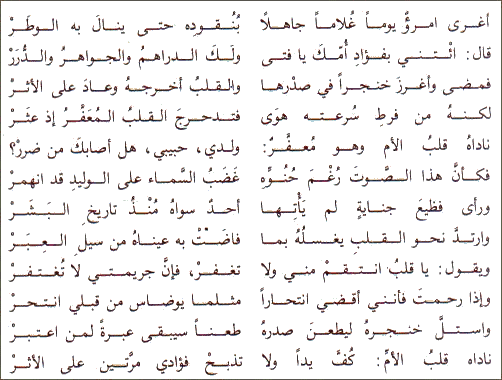 أغرى امرؤٌ يوماً غُلاماً جاهلاً بُنُقوده حتى ينالَ به الوطَرْ
قال: ائتني بفؤادِ أُمّكَ يا فتى ولَكَ الدراهمُ والجواهرُ والدُّرَرْ
فمضى وأغرزَ خنجراً في صدْرها والقلبُ أخرجهُ وعادَ على الأثرْ
لكنهُ من فرطِ سُرعته هوَى فتدحرجَ القلبُ المُعَفَّرُ إذ عثَرْ
ناداهُ قلبُ الأم وهو مُعفَّرٌ: ولدي، حبيبي، هل أصابكَ من ضررْ؟
فكأنَّ هذا الصَّوتَ رُغْمَ حُنُوِّهِ غَضَبُ السَّماء على الوليدِ قد انهمرْ
ورأى فظيعَ جنايةٍ لم يَأْتِها أحدٌ سواهُ مُنْذُ تاريخِ البَشَرْ
وارتدَّ نحو القلبِ يغسلُهُ بما فاضَتْ به عيناهُ من سيلِ العِبَرْ
ويقول: يا قلبُ انتقمْ مني ولا تغفرْ، فإنَّ جريمتي لا تُغتفرْ
وإذا رحمتَ فأنني أقضي انتحاراً مثلما يوضاس من قبلي انتحرْ
واستلَّ خنجرهُ ليطعنَ صدرهُ طعناً سيبقى عبرةً لمن اعتبرْ
ناداه قلبُ الأمِّ: كُفَّ يداً ولا تذبحْ فؤادي مرَّتين على الأثرْ